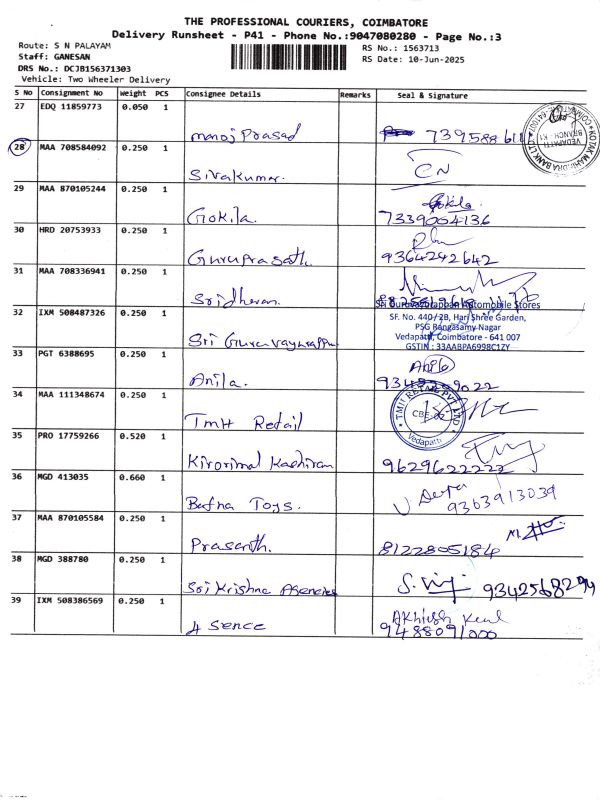 THE PROFESSIONAL COURIERS, COIMBATORE
Delivery Runsheet - P41 - Phone No.:9047080280 - Page No.:3
Route: S N PALAYAM
RS No.: 1563713
Staff: GANESAN
RS Date: 10-Jun-2025
DRS No.: DCJB156371303
Vehicle: Two Wheeler Delivery
S No Consignment No Weight PCS Consignee Details Remarks Seal & Signature
27 EDQ 11859773 0.050 1
Manoj Prasad 739588611
KOTAK MAHINDRA BANK LTD
VEDAPATTI
BRANCH
28 MAA 708584092 0.250 1
Sivakumar.
29 MAA 870105244 0.250 1
Gokila
Gokila. 7339054136
30 HRD 20753933 0.250 1
Guruprasath 9364242642
31 MAA 708336941 0.250 1
Sridharan.
Sri Guruvayurappan Automobile Stores
32 IXM 508487326 0.250 1
SF. No. 440/2B, Hari Shree Garden,
PSG Rangasamy Nagar
Vedapatti, Coimbatore - 641 007
Sri Guruvayurappan
GSTIN : 33AABPA6998C1ZY
33 PGT 6388695 0.250 1
Anila
Anila.
34 MAA 111348674 0.250 1
TMH RETAIL PVT LTD
CBE
Vedapatti
TMH Retail
35 PRO 17759266 0.520 1
Kirorimal Kashiram 9629622222
36 MGD 413035 0.660 1
Bafna Toys. 9363913039
37 MAA 870105584 0.250 1
Prasanth. 8122805184
38 MGD 388780 0.250 1
Sri Krishna Agencies 9342568294
39 IXM 508386569 0.250 1
4 Sence 9488091000